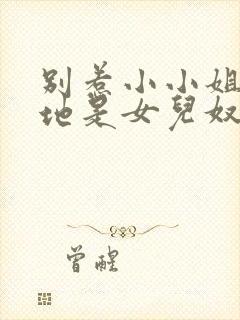 别惹小小姐
地是女兒奴
曾醒